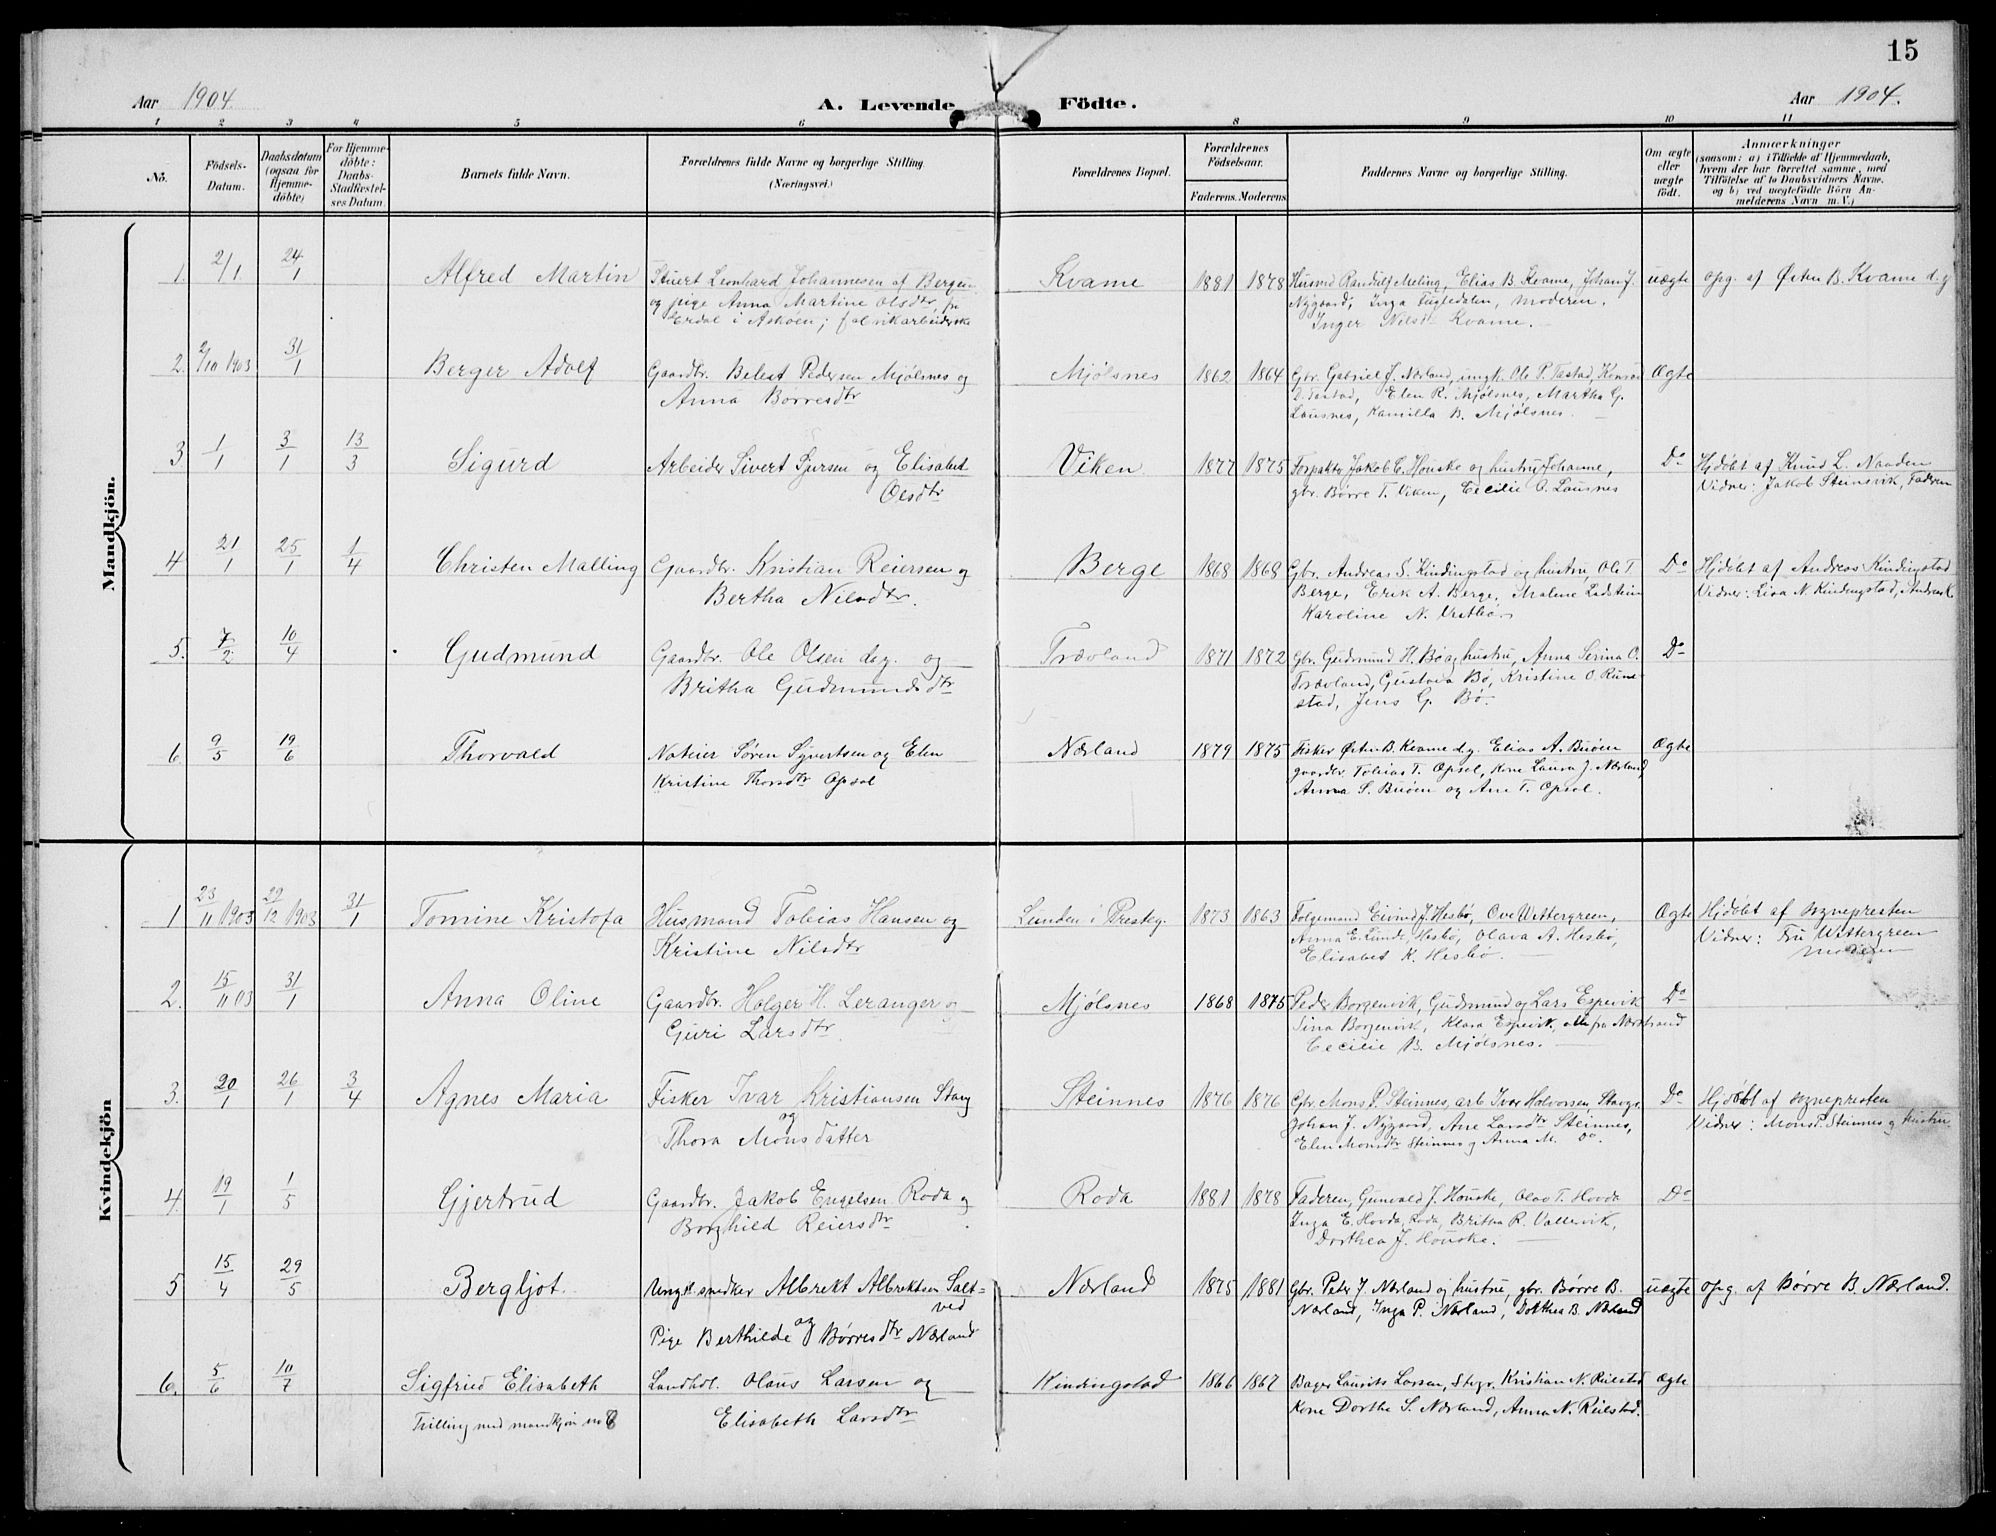 15
Aar 1904.
A. Levende Födte.
Aar 1904.
1 2 3 4 5 6 8 9 10 11
No.
Födsels-
Datum.
Daabsdatum
(ogsaa for
Hjemme-
döbte)
For Hjemme-
döbte:
Daabs-
Stadfæstel-
ses Datum.
Barnets fulde Navn.
Forældrenes fulde Navne og borgerlige Stilling
(Næringsvei.)
Forældrenes Bopæl.
Forældrenes
Födselsaar.
Faderens. Moderens.
Faddernes Navne og borgerlige Stilling.
Om ægte
eller
uægte
födt.
Anmærkninger
(saasom: a) i Tilfælde af Hjemmedaab,
hvem der har forrettet samme, med
Tilföielse af to Daabsvidners Navne,
og b) ved uægtefödte Börn An-
melderens Navn m. V.)
Mandkjön.
1. 2/1 24/1 Alfred Martin
Stuert Leonhard Johannesen af Bergen
og pige Anna Martine Olsdtr fra
Erdal i Askøen; fabrikarbeiderske
Kvame 1881 1878
Husmd Randulf Meling, Elias B. Kvame, Johan J.
Nygaard, Inga Fugledalen, moderen.
Inger Nilsdtr Kvame.
uægte opg. af Østen B. Kvame d.y
2. 2/10 1903 31/1 Berger Adolf
Gaardbr. Belest Pedersen Mjølsnes og
Anna Børresdtr
Mjølsnes 1862 1864
Gbr. Gabriel J. Nærland, ungk. Ole P. Tastad, Konrad
D. Tastad, Elen R. Mjølsnes, Martha G.
Lausnes, Kamilla B. Mjølsnes.
Ægte
3. 1/1 3/1 13/3 Sigurd
Arbeider Sivert Sjursen og Elisabet
Olsdtr
Viken 1877 1875
Forpakter Jakob E. Houske og hustru Johanne,
gbr. Børre T. Viken, Cecilie O. Lausnes
Do Hjdöbt af Knud L. Naaden
Vidner: Jakob Steinsvik, Faderen
4 21/1 25/1 1/4 Christen Malling
Gaardbr. Kristian Reiersen og
Bertha Nilsdtr.
Berge 1868 1868
Gbr. Andreas S. Kindingstad og hustru, Ole T
Berge, Erik A. Berge, Malene Ladstein
Karoline N. Vestbø.
Do Hjdöbt af Andreas Kindingstad
Vidner: Lisa N. Kindingstad, Andreas K.
5. 7/2 10/4 Gudmund
Gaardbr. Ole Olsen d.y. og
Britha Gudmundsdtr
Trævland 1871 1872
Gbr. Gudmund H. Bø og hustru, Anna Serina O.
Trævland, Gustava Bø, Kristine O. Rune-
stad, Jens G. Bø.
Do
6. 9/5 19/6 Thorvald
Noteier Søren Syvertsen og Elen
Kristine Thorsdtr Opsal
Nærland 1879 1875
Fisker Østen B. Kvame d.y. Elias A. Buøen
gaardbr. Tobias T. Opsal, kone Laura J. Nærland,
Anna S. Buøen og Ane T. Opsal.
Ægte
Kvindekjön
1 23/11 1903 29/12 1903 31/1 Tomine Kristofa
Husmand Tobias Hansen og
Kristine Nilsdtr
Lunden i Presteg. 1873 1863
Folgemand Eivind J. Hesbø, Ove Wettergreen,
Anna E. Lunde, Hesbø, Olava A. Hesbø,
Elisabet K. Hesbø.
Ægte Hjdöbt af sognepresten
Vidner: Fru Wettergreen
moderen
2. 15/11 03 31/1 Anna Oline
Gaardbr. Holger H. Leranger og
Guri Larsdtr.
Mjølsnes 1868 1875
Peder Borgenvik, Gudmund og Lars Espevik
Sina Borgenvik, Klara Espevik, alle fra Nærstrand
Cecilie B. Mjølsnes.
Do
3. 20/1 26/1 3/4 Agnes Maria
Fisker Ivar Kristiansen Stang
og
Thora Monsdatter
Steinnes 1876 1876
Gbr. Mons P. Steinnes, arb Iver Halvorsen Stavgr.
Johan J. Nygaard, Ane Larsdtr Steinnes,
Elen Monsdtr Steinnes og Anna M. Do.
Do Hjdöbt af sognepresten
Vidner: Mons P. Steinnes og hustru
4. 19/1 1/5 Gjertrud
Gaardbr. Jakob Engelsen Roda og
Borghild Reiersdtr
Roda 1881 1878
Faderen, Gunvald J. Houske, Olav T. Hovda
Inga E. Hovda, Roda, Britha R. Vallevik,
Dorthea J. Houske.
Do
5 15/4 29/5 Bergljot.
Ungk. snedker Albrekt Albrektsen Salt-
ved
og
Pige Berthilde Børresdtr Nærland
Nærland 1875 1881
Gbr. Peter J. Nærland og hustru, gbr. Børre B.
Nærland, Inga P. Nærland, Dorthea B. Nærland
uægte opg. af Børre B. Nærland.
6. 5/6 10/7 Sigfried Elisabeth
Tvilling med mandkjøn no 8
Landhdl. Olaus Larsen og
Elisabeth Larsdtr
Kindingstad 1866 1867
Bager Laurits Larsen, Stvgr. Kristian N. Reilstad
Kone Dorthe S. Nærland, Anna N. Reilstad.
Ægte